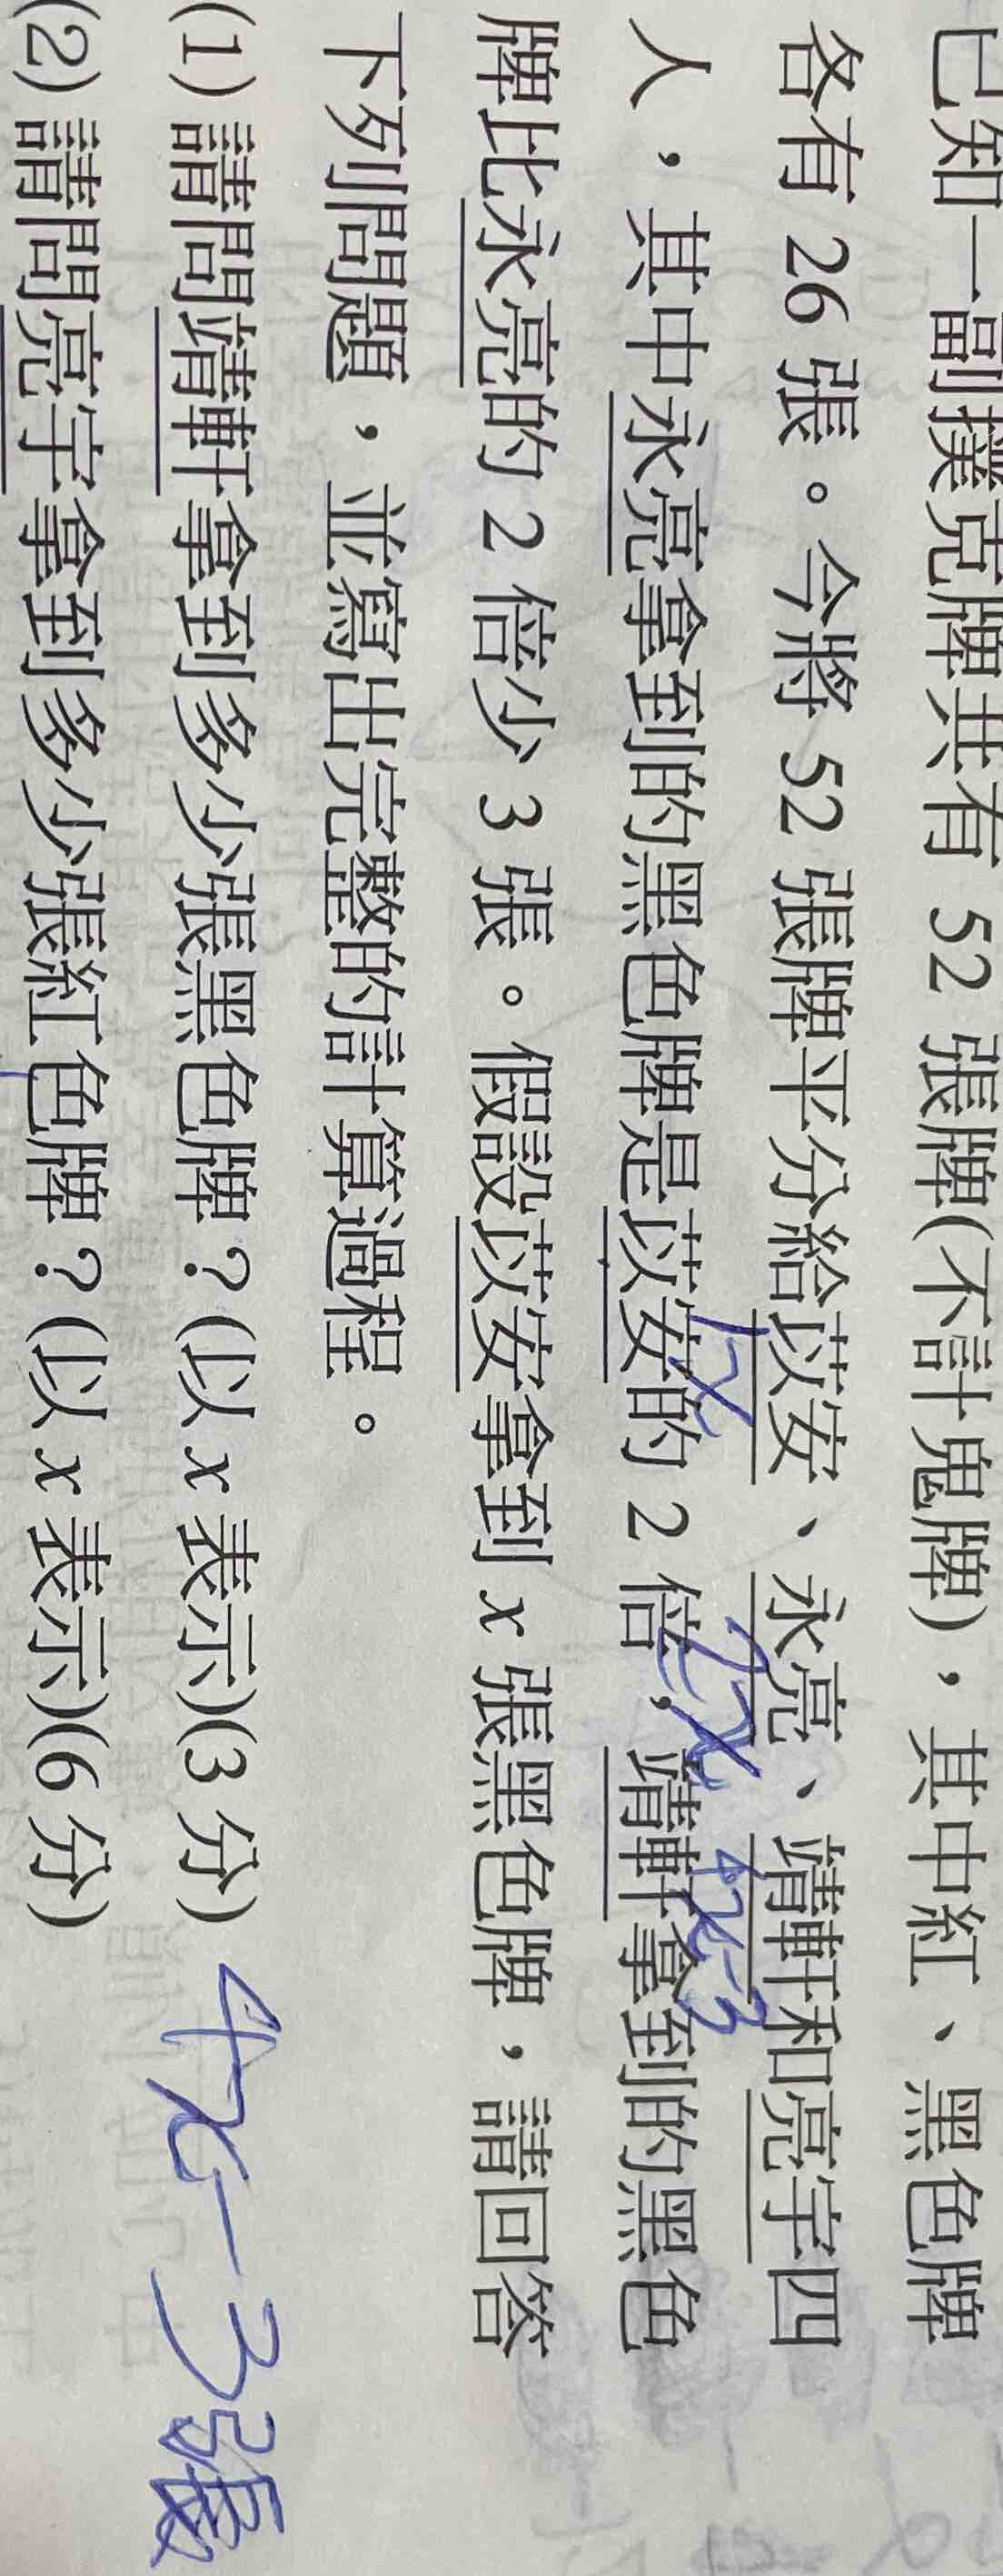 已知一副撲克牌共有 52 張牌(不計鬼牌)，其中紅、黑色牌
各有 26 張。今將 52 張牌平分給苡安、永亮、靖軒和亮宇四
x 2x 4x-3
人，其中永亮拿到的黑色牌是苡安的 2 倍，靖軒拿到的黑色
牌比永亮的 2 倍少 3 張。假設苡安拿到 x 張黑色牌，請回答
下列問題，並寫出完整的計算過程。
(1) 請問靖軒拿到多少張黑色牌？(以 x 表示)(3 分) 4x-3張
(2) 請問亮宇拿到多少張紅色牌？(以 x 表示)(6 分)